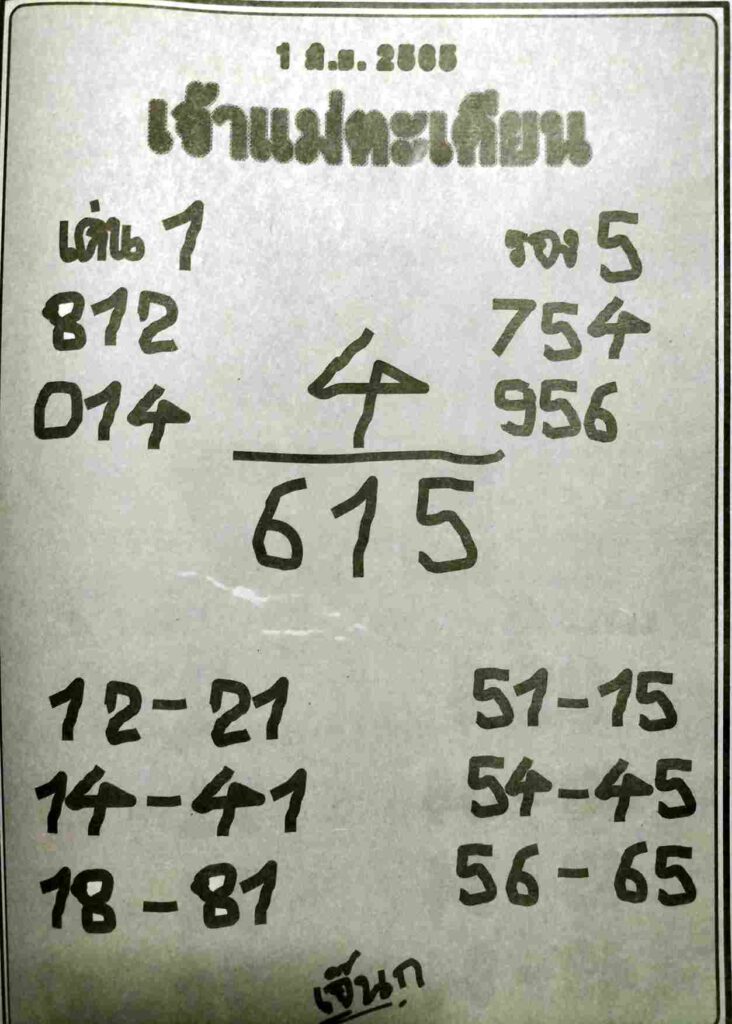 1 มิ.ย. 2565
เจ้าแม่ตะเคียน
เด่น 1
812
014
รอง 5
754
956
4
615
12-21
14-41
18-81
51-15
54-45
56-65